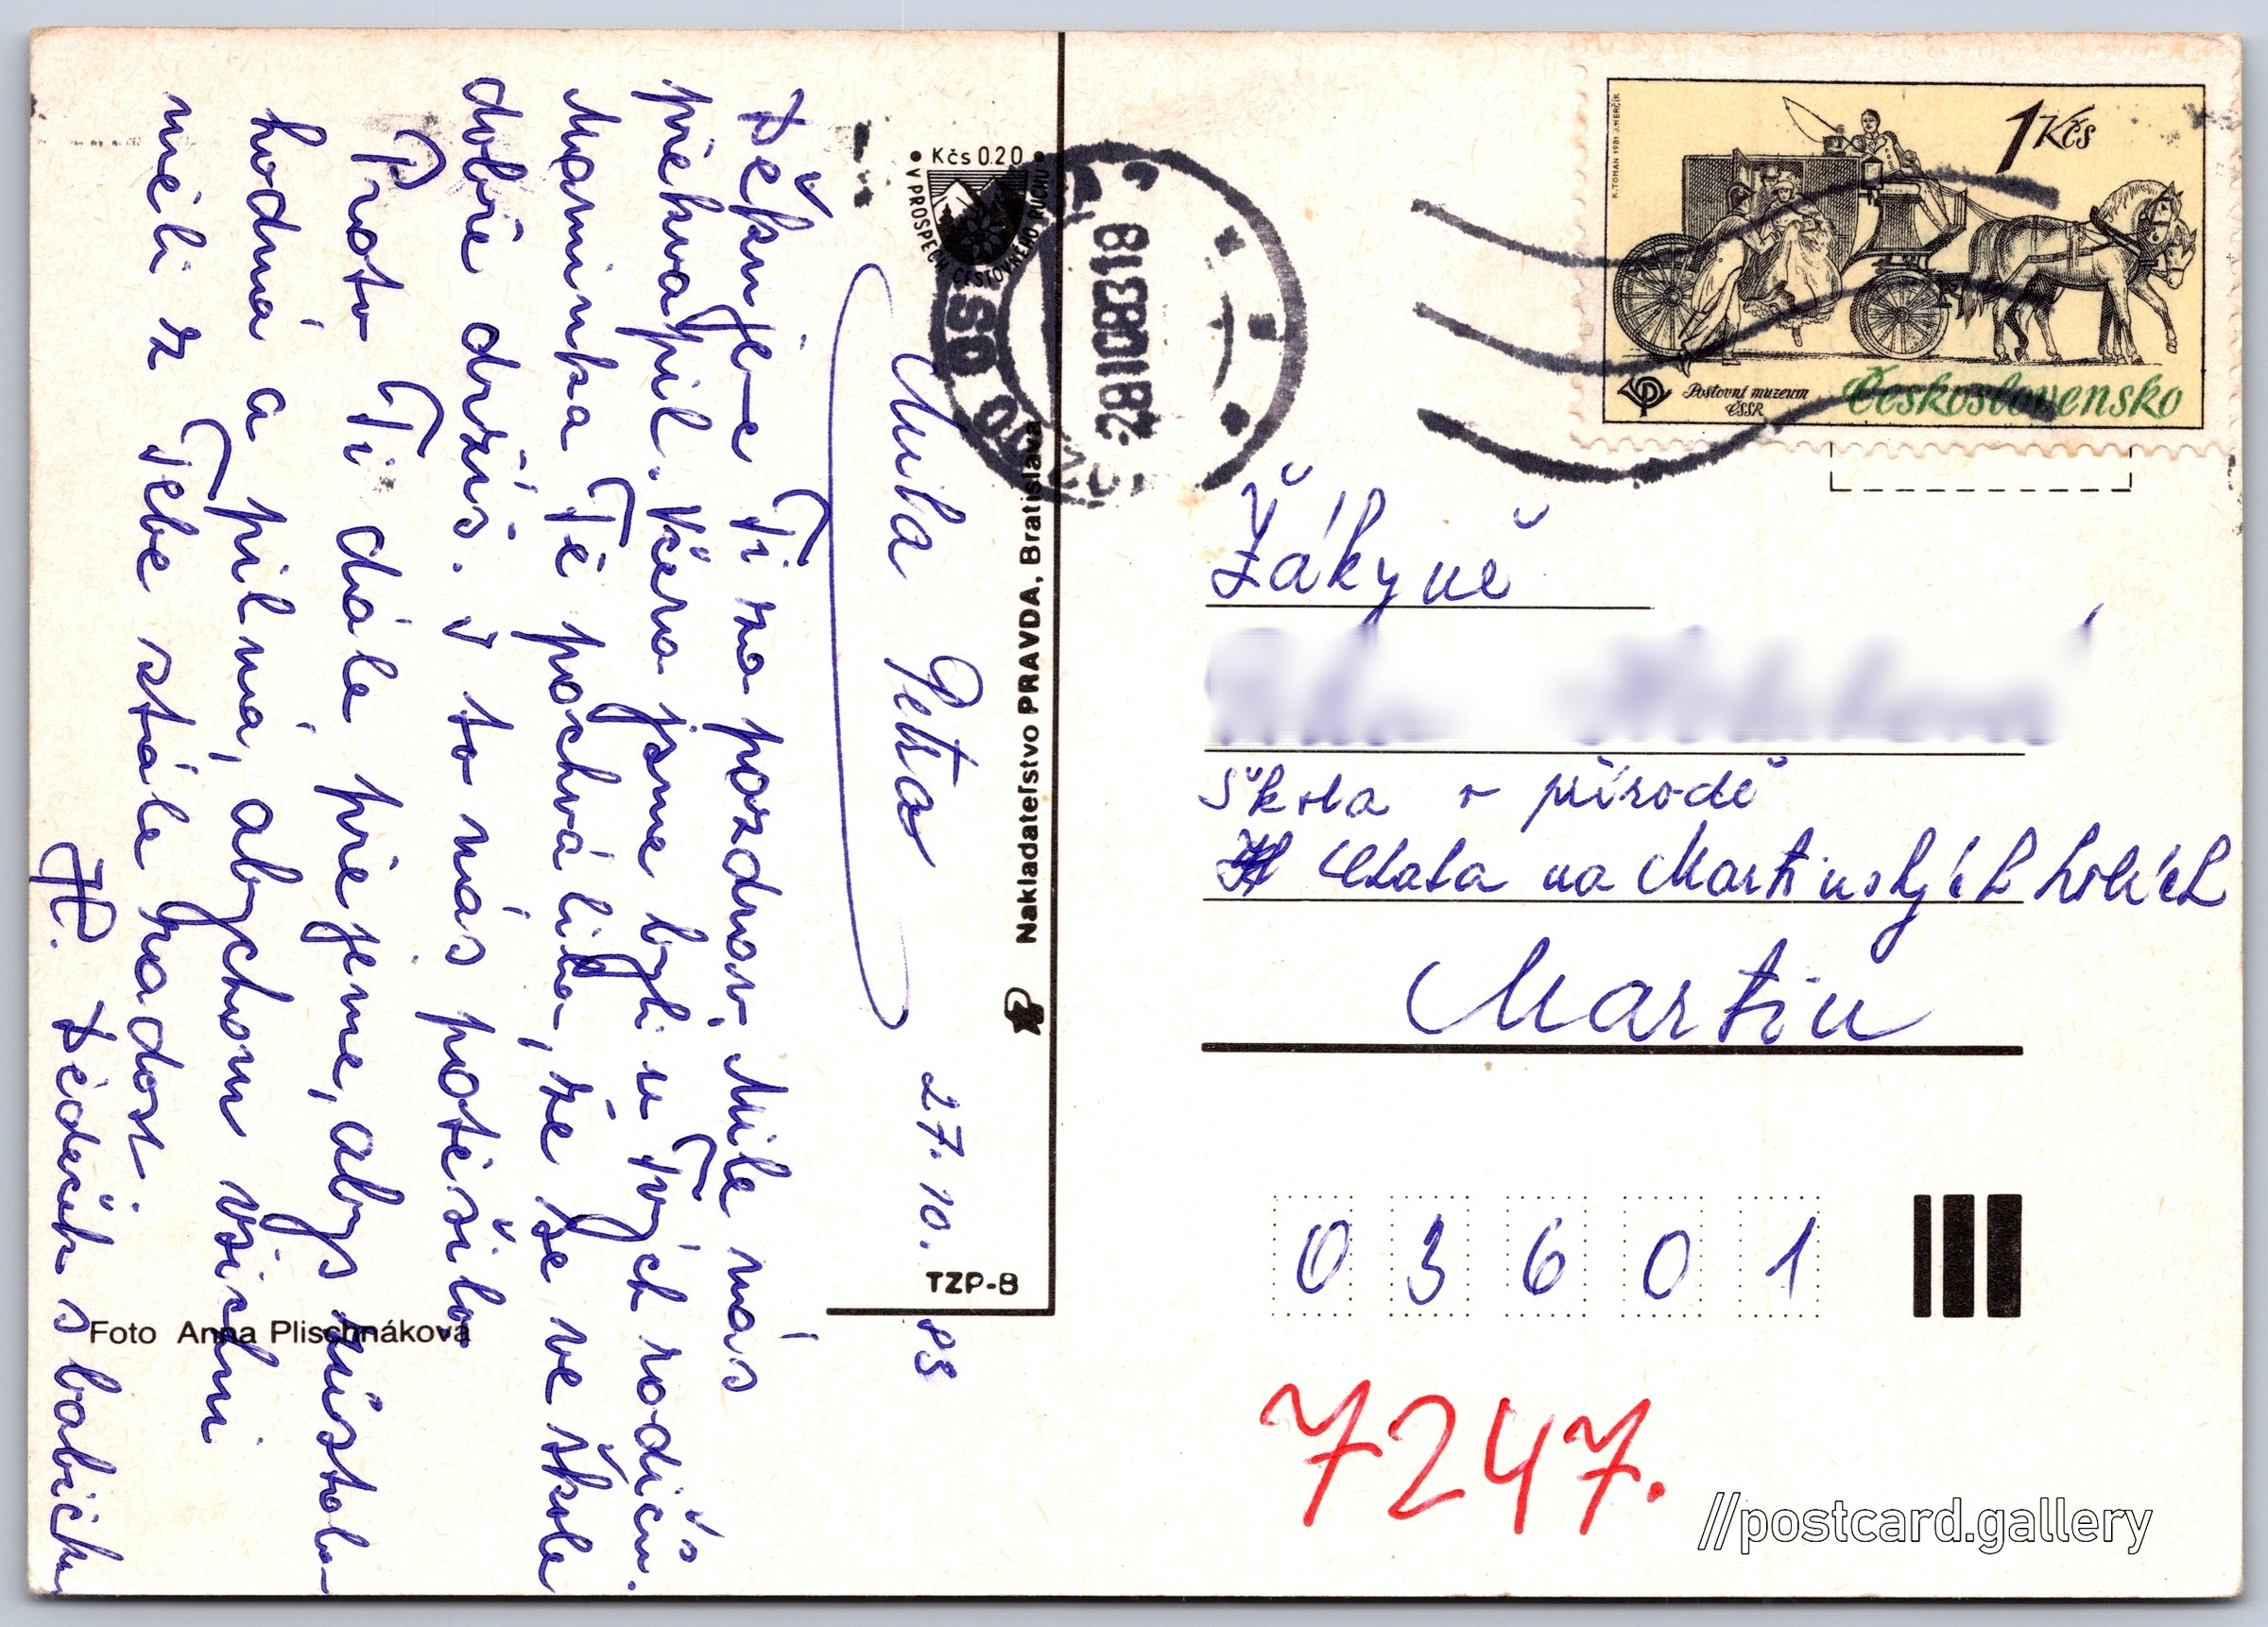 Milá Petro
27. 10. 83
Děkuje-e Ti za pozdrav. Mile nás
překvapil. Včera jsme byli u Tvých rodičů.
Maminka Tě pochválila, že se ve škole
dobře držíš. I to nás potěšilo
Proto Ti dále přejeme, abys zůstala
hodná a pilná, abychom všichni
měli z Tebe stále radost
Dědeček s babičkou
Kčs 0.20
V PROSPECH CESTOVNÉHO RUCHU
Nakladateľstvo PRAVDA, Bratislava
TZP-8
Foto Anna Plischnáková
28.10.83 18
1 Kčs
K. TOMAN 1981 J. HERČÍK
Poštovní muzeum
ČSSR
Československo
Žákyně
Škola v přírodě
Chata na Martinských holích
Martin
03601
7247.
//postcard.gallery